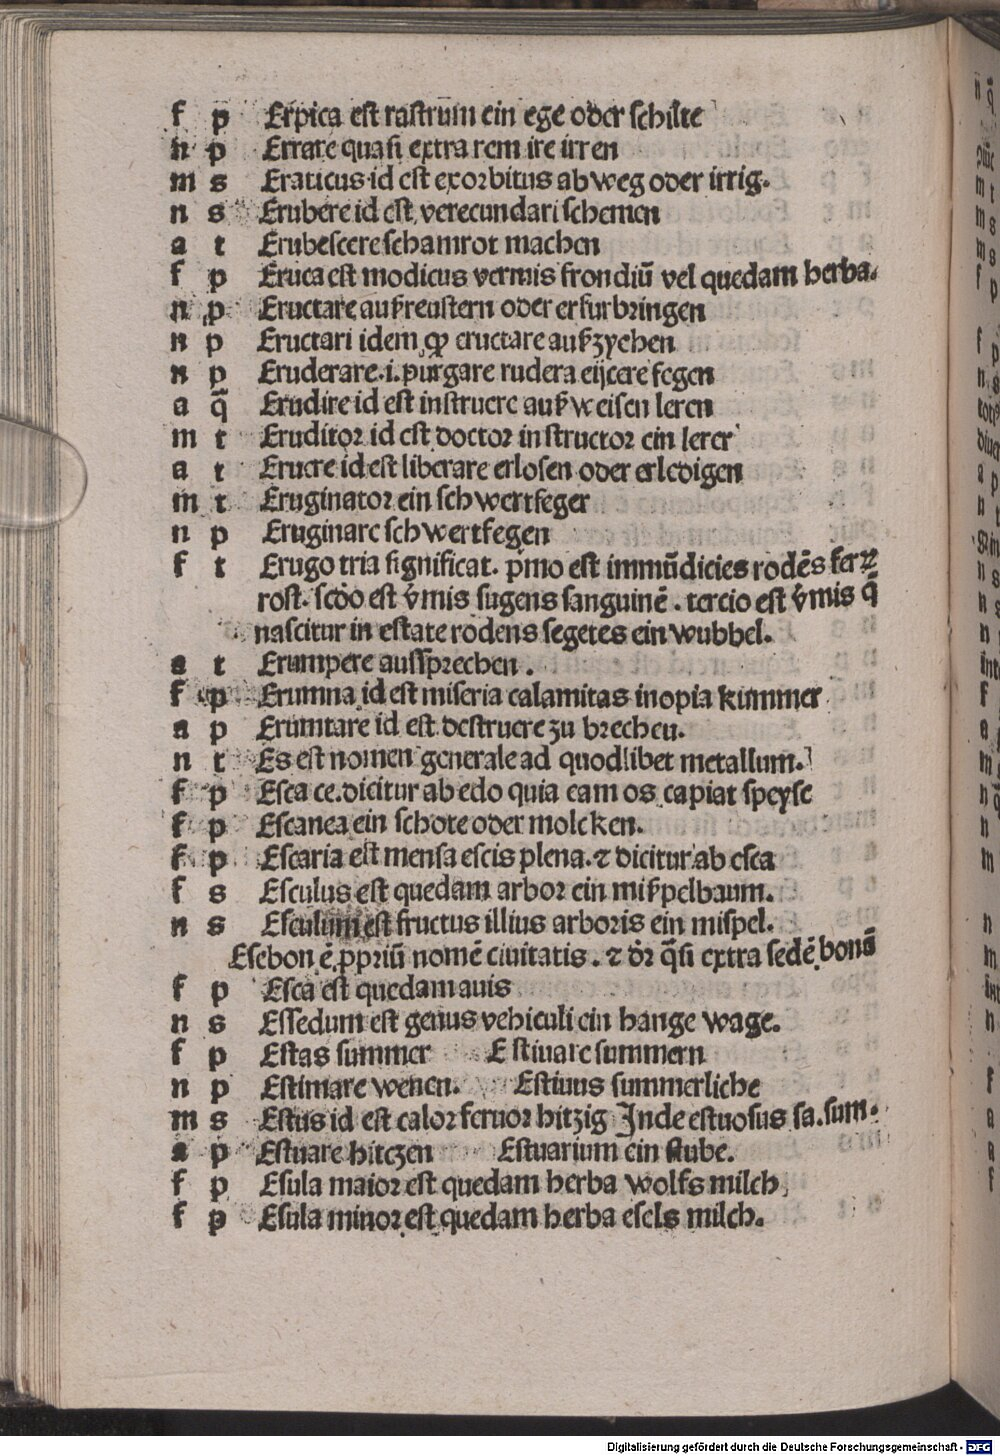 f p Erpica est rastrum ein ege oder schilte
n p Errare quasi extra rem ire irren
m s Eraticus id est exorbitus ab weg oder irrig.
n s Erubere id est verecundari schemen
a t Erubescere schamrot machen
f p Eruca est modicus vermis frondiū vel quedam herba.
n p Eructare außreustern oder erfurbringen
n p Eructari idem ꝙ eructare außzyehen
n p Eruderare .i. purgare rudera eijcere fegen
a q̄ Erudire id est instruere auß weisen leren
m t Eruditor id est doctor instructor ein lerer
a t Eruere id est liberare erlosen oder erledigen
m t Eruginator ein schwertfeger
n p Eruginare schwertfegen
f t Erugo tria significat. pͥmo est immūdicies rodēs ferꝝ
rost. scd̄o est v̓mis sugens sanguinē . tercio est v̓mis q̄
nascitur in estate rodens segetes ein wubbel.
a t Erumpere aussprechen .
f p Erumna id est miseria calamitas inopia kummer
a p Erumtare id est destruere zu brechen.
n t Es est nomen generale ad quodlibet metallum.
f p Esca ce. dicitur ab edo quia eam os capiat speyse
f p Escanea ein schote oder molcken.
f p Escaria est mensa escis plena. ⁊ dicitur ab esca
f s Esculus est quedam arbor ein mißpelbaum.
n s Esculum est fructus illius arboris ein mispel.
Esebon ē ꝓpriū nomē ciuitatis . ⁊ dr̄ q̄si extra sedē bonū
f p Esca est quedam auis
n s Essedum est genus vehiculi ein hange wage.
f p Estas summer Estiuare summern
n p Estimare wenen. Estiuus summerliche
m s Estus id est calor feruor hitzig Inde estuosus sa. sum.
a p Estuare hitczen Estuarium ein stube.
f p Esula maior est quedam herba wolfs milch
f p Esula minor est quedam herba esels milch.
Digitalisierung gefördert durch die Deutsche Forschungsgemeinschaft - DFG